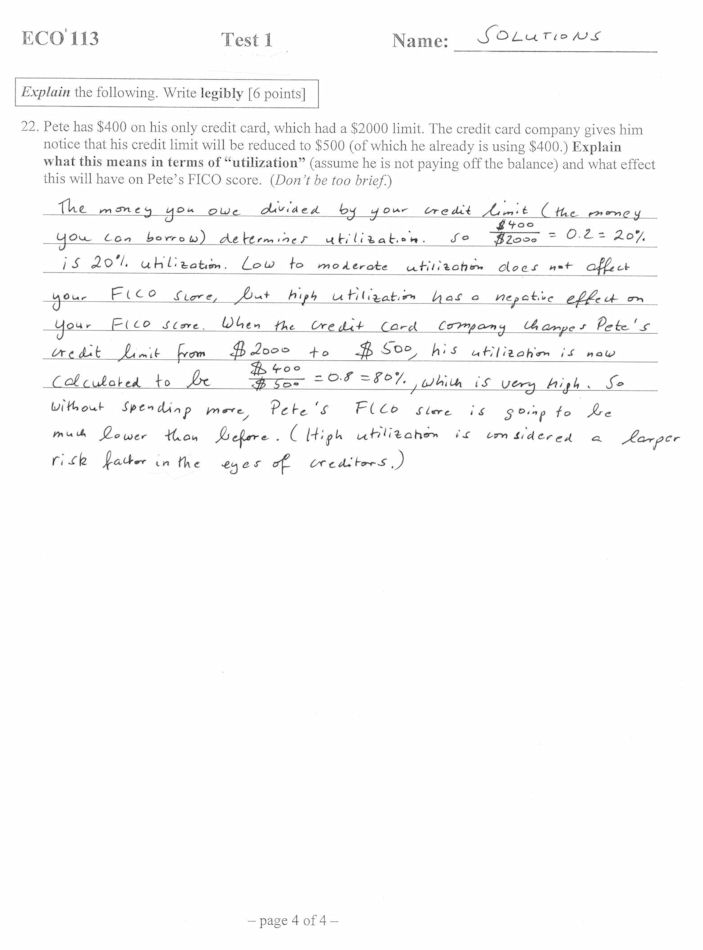 ECO 113 Test 1 Name: SOLUTIONS
Explain the following. Write legibly [6 points]
22. Pete has $400 on his only credit card, which had a $2000 limit. The credit card company gives him
notice that his credit limit will be reduced to $500 (of which he already is using $400.) Explain
what this means in terms of “utilization” (assume he is not paying off the balance) and what effect
this will have on Pete’s FICO score. (Don’t be too brief.)
The money you owe divided by your credit limit (the money
you can borrow) determines utilization. So $400/$2000 = 0.2 = 20%
is 20% utilization. Low to moderate utilization does not affect
your FICO score, but high utilization has a negative effect on
your FICO score. When the credit card company changes Pete's
credit limit from $2000 to $500, his utilization is now
calculated to be $400/$500 = 0.8 = 80%, which is very high. So
without spending more, Pete's FICO score is going to be
much lower than before. (High utilization is considered a larger
risk factor in the eyes of creditors.)
– page 4 of 4 –